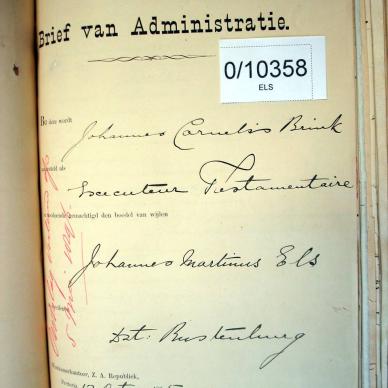 Brief van Administratie.
0/10358
ELS
Bij deze wordt
Johannes Cornelis Brink
aangesteld als
Executeur Testamentaire
gemachtigd den boedel van wijlen
Johannes Martinus Els
Dst: Rustenburg
Z. A. Republiek,
Pretoria